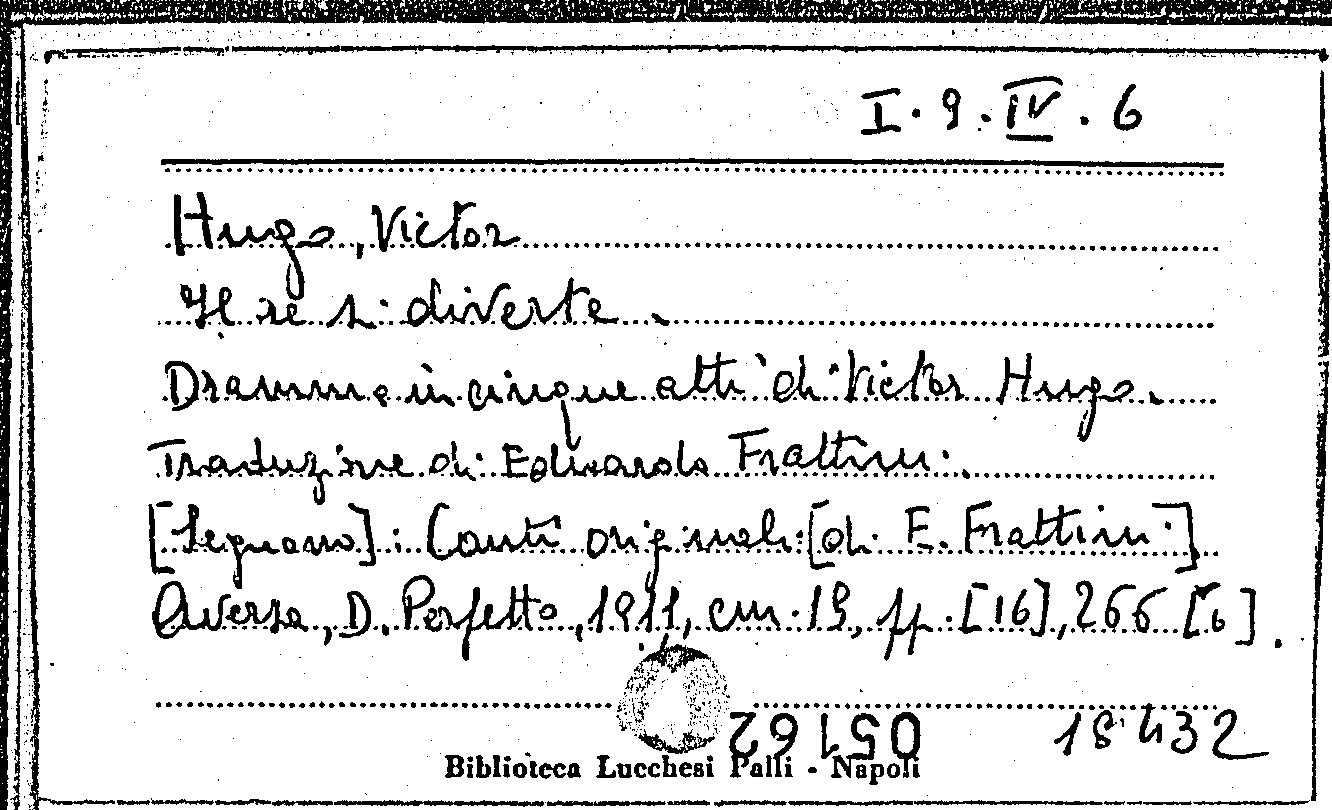 I. 9. IV. 6
Hugo, Victor
Il re si diverte.
Dramma in cinque atti di Victor Hugo.
Traduzione di Edoardo Frattini.
[Seguono]: Canti originali [di E. Frattini]
Aversa, D. Perfetto, 1911, cm. 19, pp. [16], 266 [6].
05162
18432
Biblioteca Lucchesi Palli - Napoli